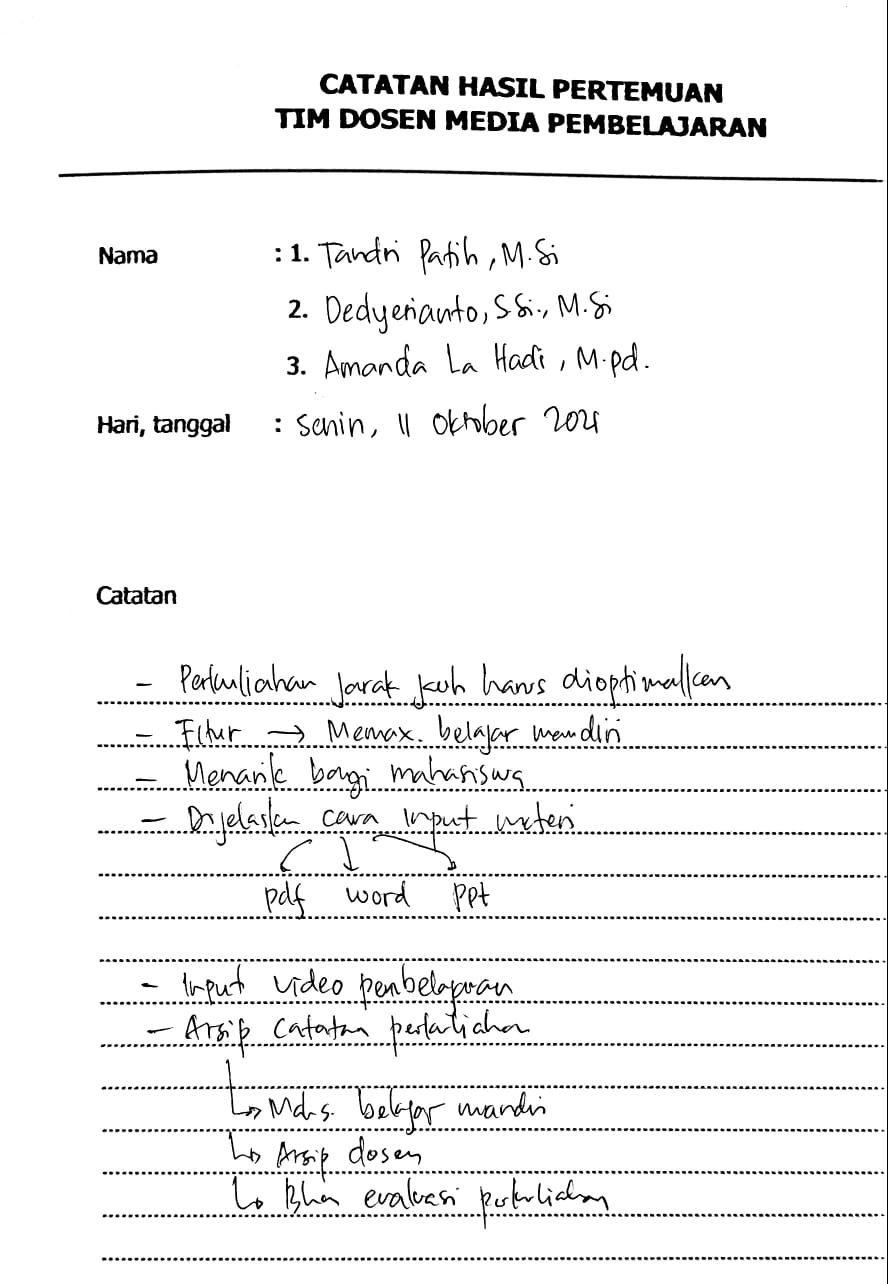 CATATAN HASIL PERTEMUAN
TIM DOSEN MEDIA PEMBELAJARAN
Nama : 1. Tandri Patih, M.Si
2. Dedyerianto, S.Si., M.Si
3. Amanda La Hadi, M.pd.
Hari, tanggal : Senin, 11 Oktober 2021
Catatan
- Perkuliahan jarak jauh harus dioptimalkan
- Fitur → Memax. belajar mandiri
- Menarik bagi mahasiswa
- Dijelaskan cara input materi
pdf word ppt
- Input video pembelajaran
- Arsip catatan perkuliahan
↳ Mhs. belajar mandiri
↳ Arsip dosen
↳ Bhn evaluasi perkuliahan